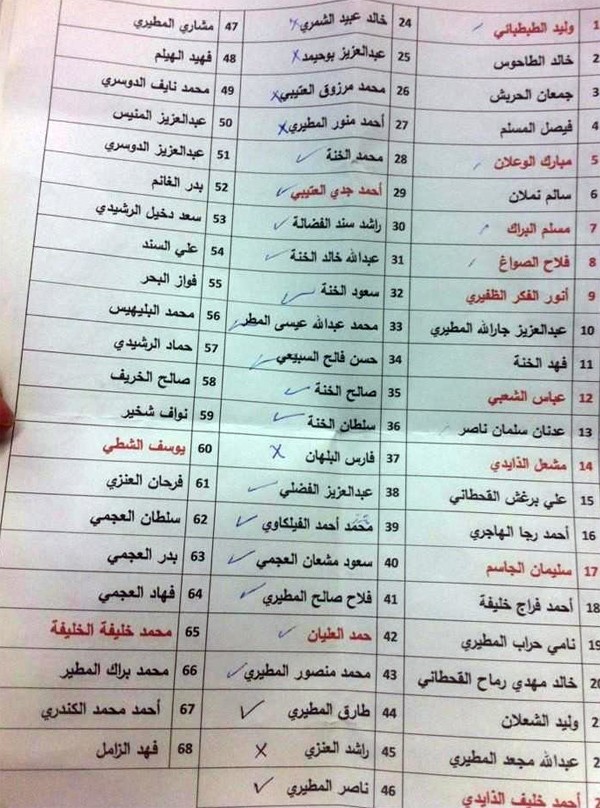 1 وليد الطبطبائي
2 خالد الطاحوس
3 جمعان الحربش
4 فيصل المسلم
5 مبارك الوعلان
6 سالم نملان
7 مسلم البراك
8 فلاح الصواغ
9 أنور الفكر الظفيري
10 عبدالعزيز جارالله المطيري
11 فهد الخنة
12 عباس الشعبي
13 عدنان سلمان ناصر
14 مشعل الذايدي
15 علي برغش القحطاني
16 أحمد رجا الهاجري
17 سليمان الجاسم
18 أحمد فراج خليفة
19 نامي حراب المطيري
20 خالد مهدي رماح القحطاني
2 وليد الشعلان
2 عبدالله مجعد المطيري
أحمد خليف الذايدي
24 خالد عبيد الشمري
25 عبدالعزيز بوحيمد
26 محمد مرزوق العتيبي
27 أحمد منور المطيري
28 محمد الخنة
29 أحمد جدي العتيبي
30 راشد سند الفضالة
31 عبدالله خالد الخنة
32 سعود الخنة
33 محمد عبدالله عيسى المطر
34 حسن فالح السبيعي
35 صالح الخنة
36 سلطان الخنة
37 فارس البلهان
38 عبدالعزيز الفضلي
39 محمد أحمد الفيلكاوي
40 سعود مشعان العجمي
41 فلاح صالح المطيري
42 حمد العليان
43 محمد منصور المطيري
44 طارق المطيري
45 راشد العنزي
46 ناصر المطيري
47 مشاري المطيري
48 فهيد الهيلم
49 محمد نايف الدوسري
50 عبدالعزيز المنيس
51 عبدالعزيز الدوسري
52 بدر الغانم
53 سعد دخيل الرشيدي
54 علي السند
55 فواز البحر
56 محمد البليهيس
57 حماد الرشيدي
58 صالح الخريف
59 نواف شخير
60 يوسف الشطي
61 فرحان العنزي
62 سلطان العجمي
63 بدر العجمي
64 فهاد العجمي
65 محمد خليفة الخليفة
66 محمد براك المطير
67 أحمد محمد الكندري
68 فهد الزامل